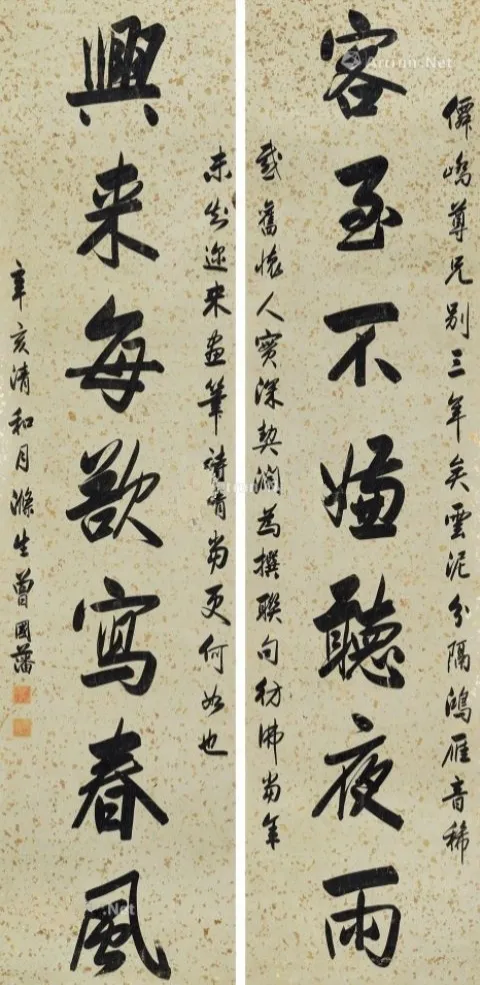 僊崂尊兄别三年矣雲泥分隔鴻雁音稀
客至不嫌聽夜雨
感舊懷人實深契濶為撰聯句彷彿當年
未知邇来畫筆詩情尚更何如也
興来每欲寫春風
辛亥清和月滌生曾國藩
Artron.Net